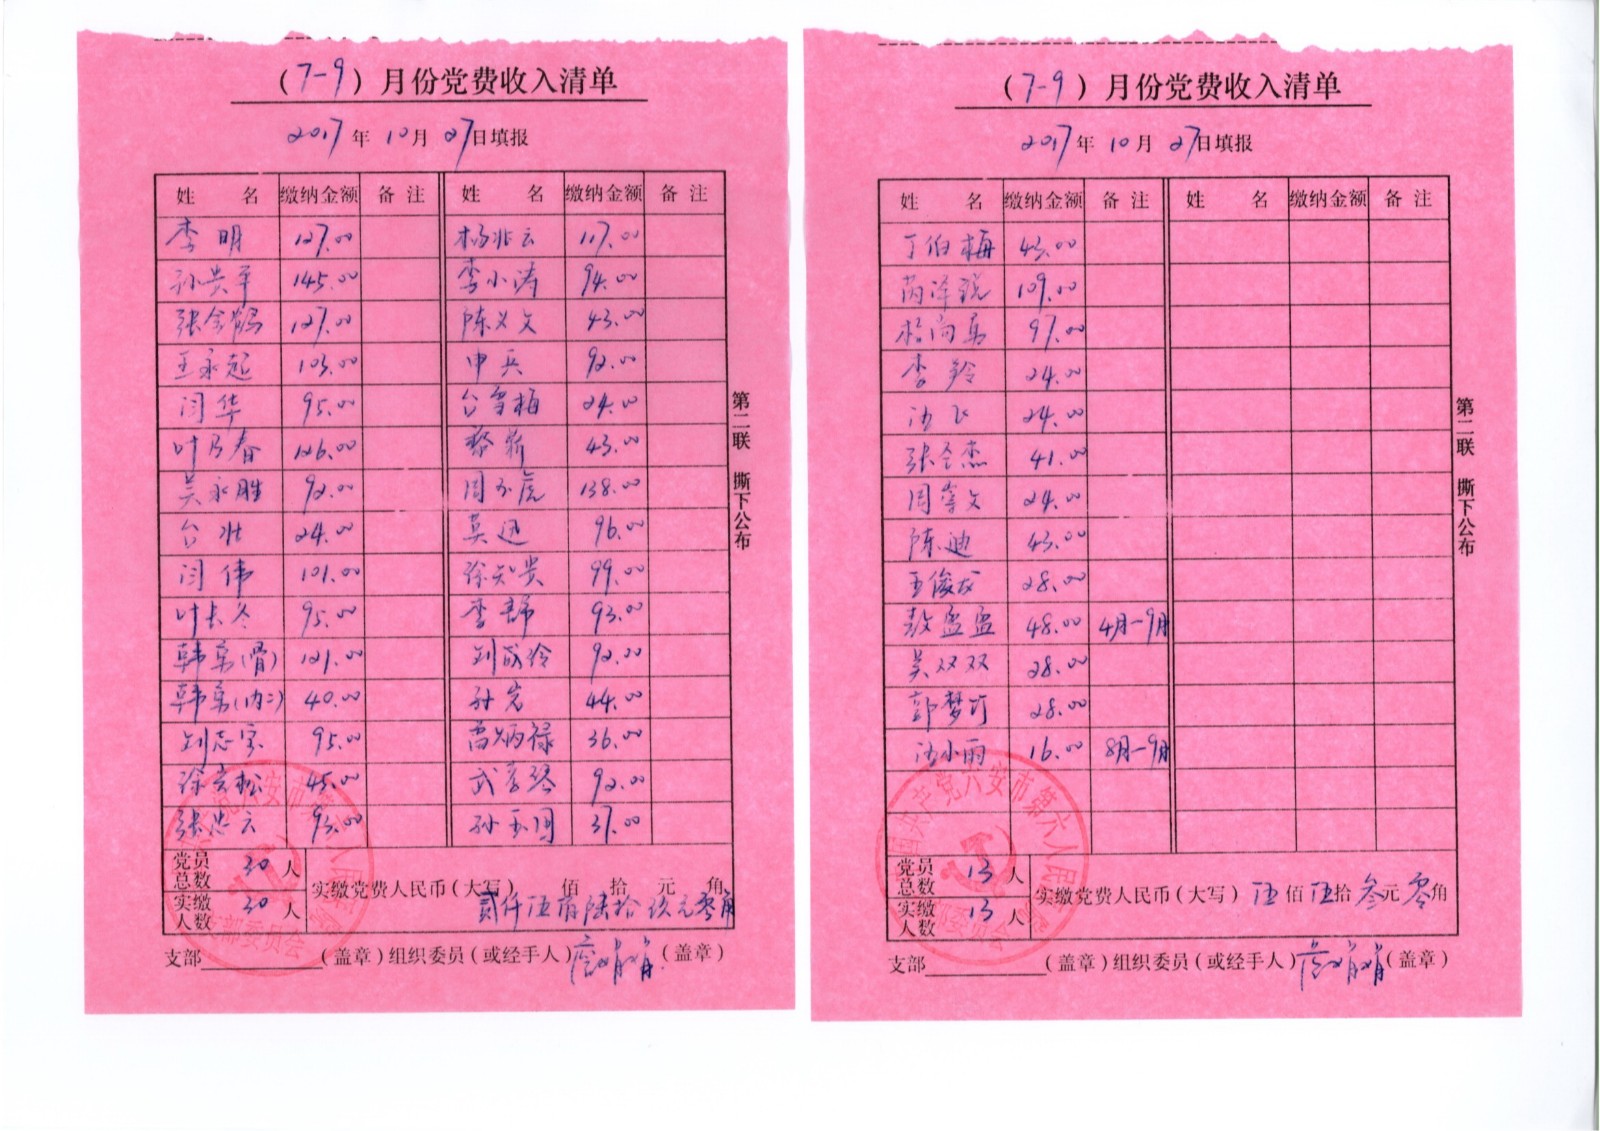 （7-9）月份党费收入清单
2017年10月27日填报
姓 名 缴纳金额 备注 姓 名 缴纳金额 备注
李明 127.00 杨兆云 117.00
孙贵平 145.00 李小涛 94.00
张金鹤 127.00 陈义文 43.00
王永起 103.00 申兵 92.00
闫华 95.00 台雪梅 24.00
叶乃春 126.00 43.00
吴永胜 92.00 138.00
台壮 24.00 莫迅 96.00
闫伟 101.00 徐知贵 99.00
叶长冬 95.00 李静 93.00
韩勇（骨） 121.00 刘成伶 92.00
韩勇（内二） 40.00 孙岩 44.00
刘志宇 95.00 雷炳禄 36.00
徐宏松 45.00 武孝琴 92.00
张忠云 93.00 孙玉国 37.00
党员总数 30人
实缴人数 30人
实缴党费人民币（大写） 佰 拾 元 角
贰仟伍佰陆拾玖元零角
支部（盖章）组织委员（或经手人）（盖章）
第二联 撕下公布
（7-9）月份党费收入清单
2017年10月27日填报
姓 名 缴纳金额 备注 姓 名 缴纳金额 备注
丁伯梅 43.00
芮泽锐 109.00
109.00
97.00
李羚 24.00
沈飞 24.00
张全杰 41.00
周崇文 24.00
陈迪 43.00
王俊成 28.00
敖孟孟 48.00 4月-9月
吴双双 28.00
郭梦竹 28.00
沈小雨 16.00 8月-9月
党员总数 13人
实缴人数 13人
实缴党费人民币（大写）伍佰伍拾叁元零角
支部（盖章）组织委员（或经手人）（盖章）
第二联 撕下公布